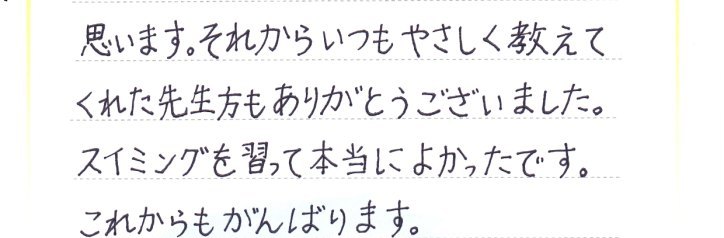 思います。それからいつもやさしく教えて
くれた先生方もありがとうございました。
スイミングを習って本当によかったです。
これからもがんばります。